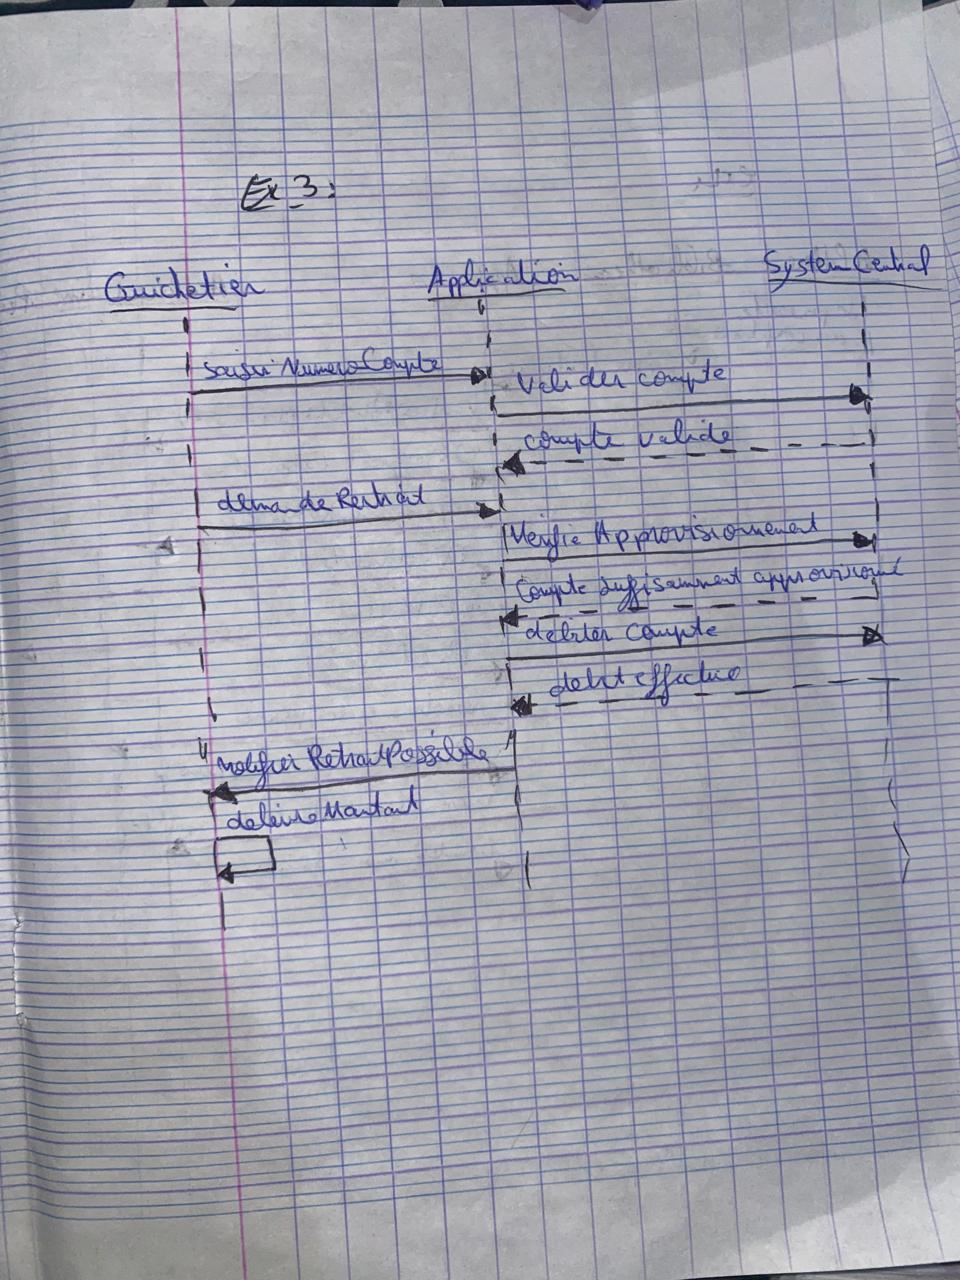 Ex 3:
Guichetier Application System Central
saisir Numero Compte
Valider compte
compte valide
demande Retrait
Verifie Approvisionnement
Compte suffisamment approvisionné
debiter Compte
debit effectué
notifier Retrait Possible
delivre Montant